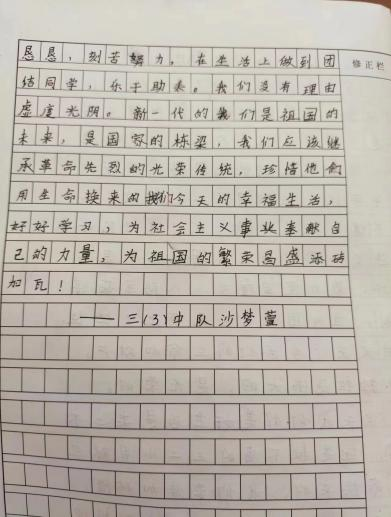 恳恳，刻苦努力，在生活上做到团
修正栏
结同学，乐于助泰。我们没有理由
虚度光阴。新一代的我们是祖国的
未来，是国家的栋梁，我们应该继
承革命先烈的光荣传统，珍惜他们
用生命换来的我们今天的幸福生活，
好好学习，为社会主义事业奉献自
己的力量，为祖国的繁荣昌盛添砖
加瓦！
——三(3)中队沙梦萱